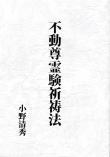 不動尊霊験祈祷法
小野清秀